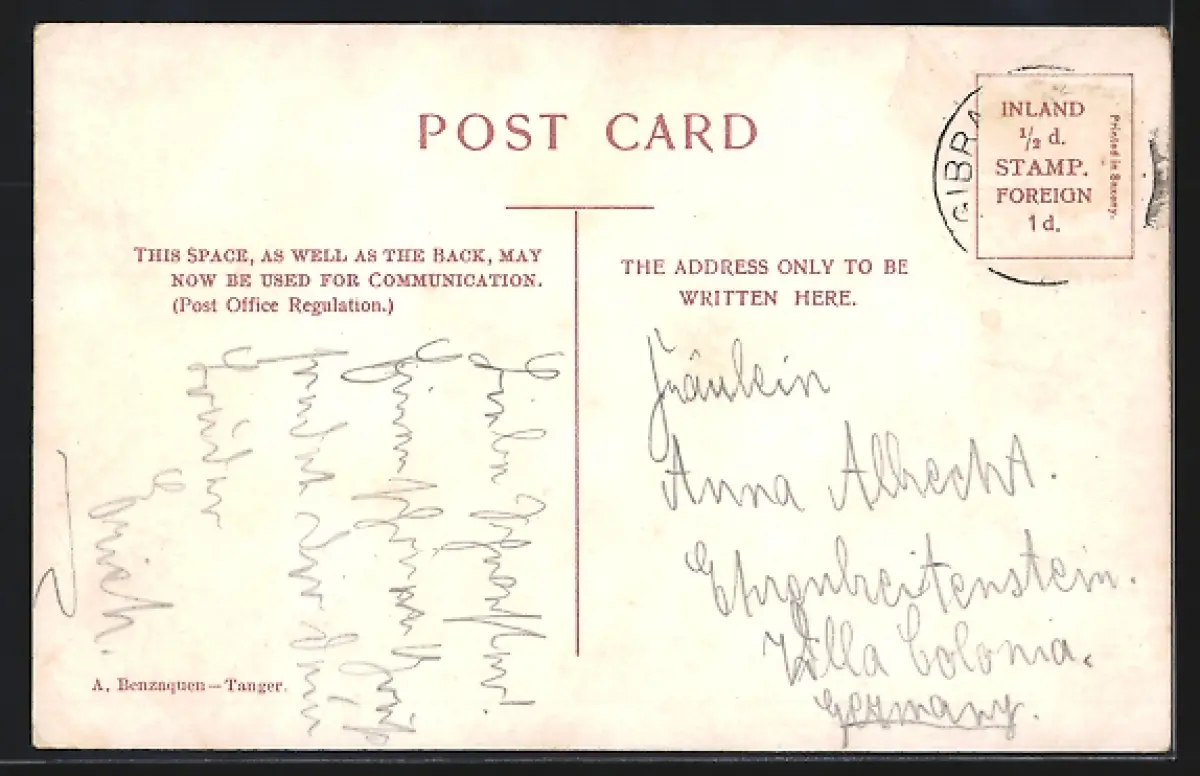 POST CARD
GIBRA
INLAND
½ d.
STAMP.
FOREIGN
1 d.
Printed in Saxony.
THIS SPACE, AS WELL AS THE BACK, MAY
NOW BE USED FOR COMMUNICATION.
(Post Office Regulation.)
THE ADDRESS ONLY TO BE
WRITTEN HERE.
Fräulein
Anna Albrecht.
Ehrenbreitenstein.
Villa Colonia.
Germany.
Liebe
sendet Dir Dein
Erich.
A. Benzaquen — Tanger.